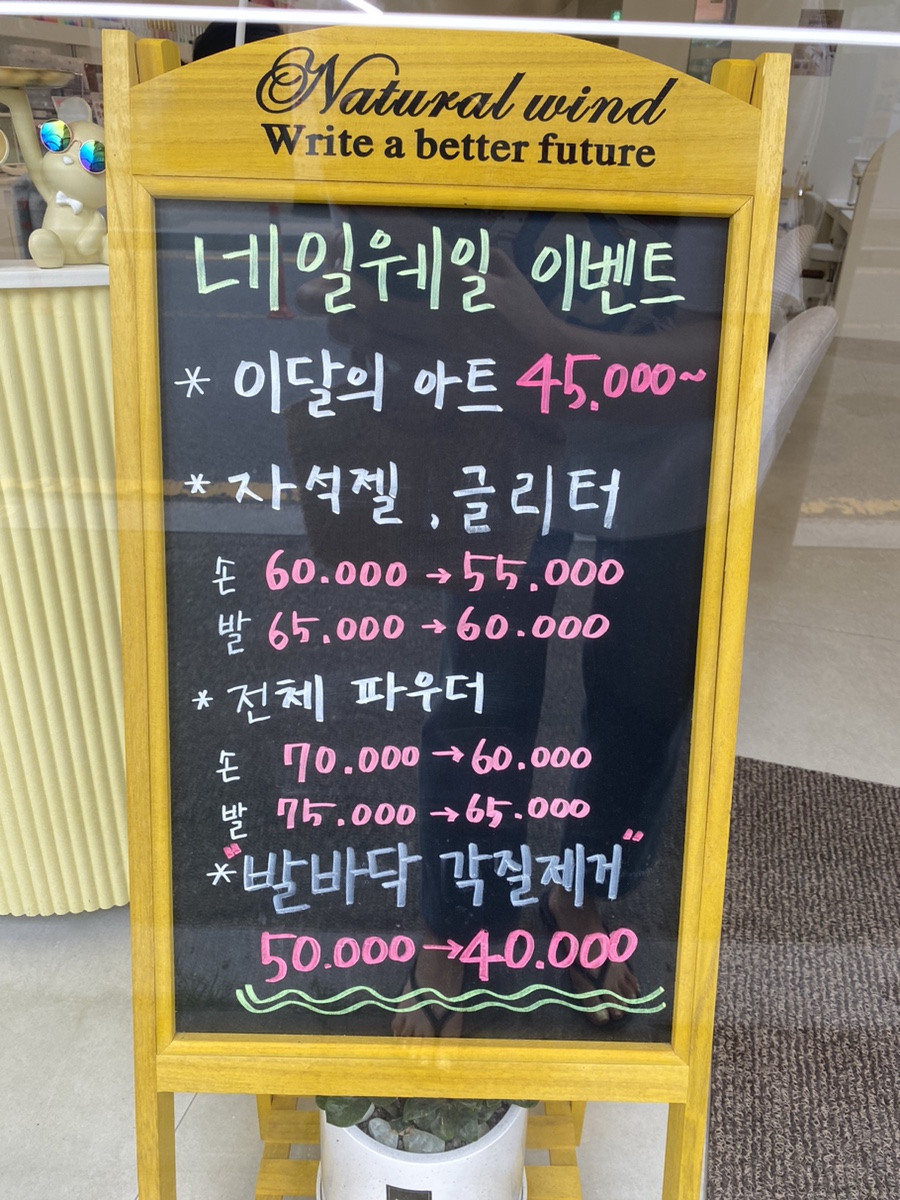 Natural wind
Write a better future
네일웨일 이벤트
* 이달의 아트 45.000~
* 자석젤, 글리터
손 60.000 → 55.000
발 65.000 → 60.000
* 전체 파우더
손 70.000 → 60.000
발 75.000 → 65.000
* "발바닥 각질제거"
50.000 → 40.000